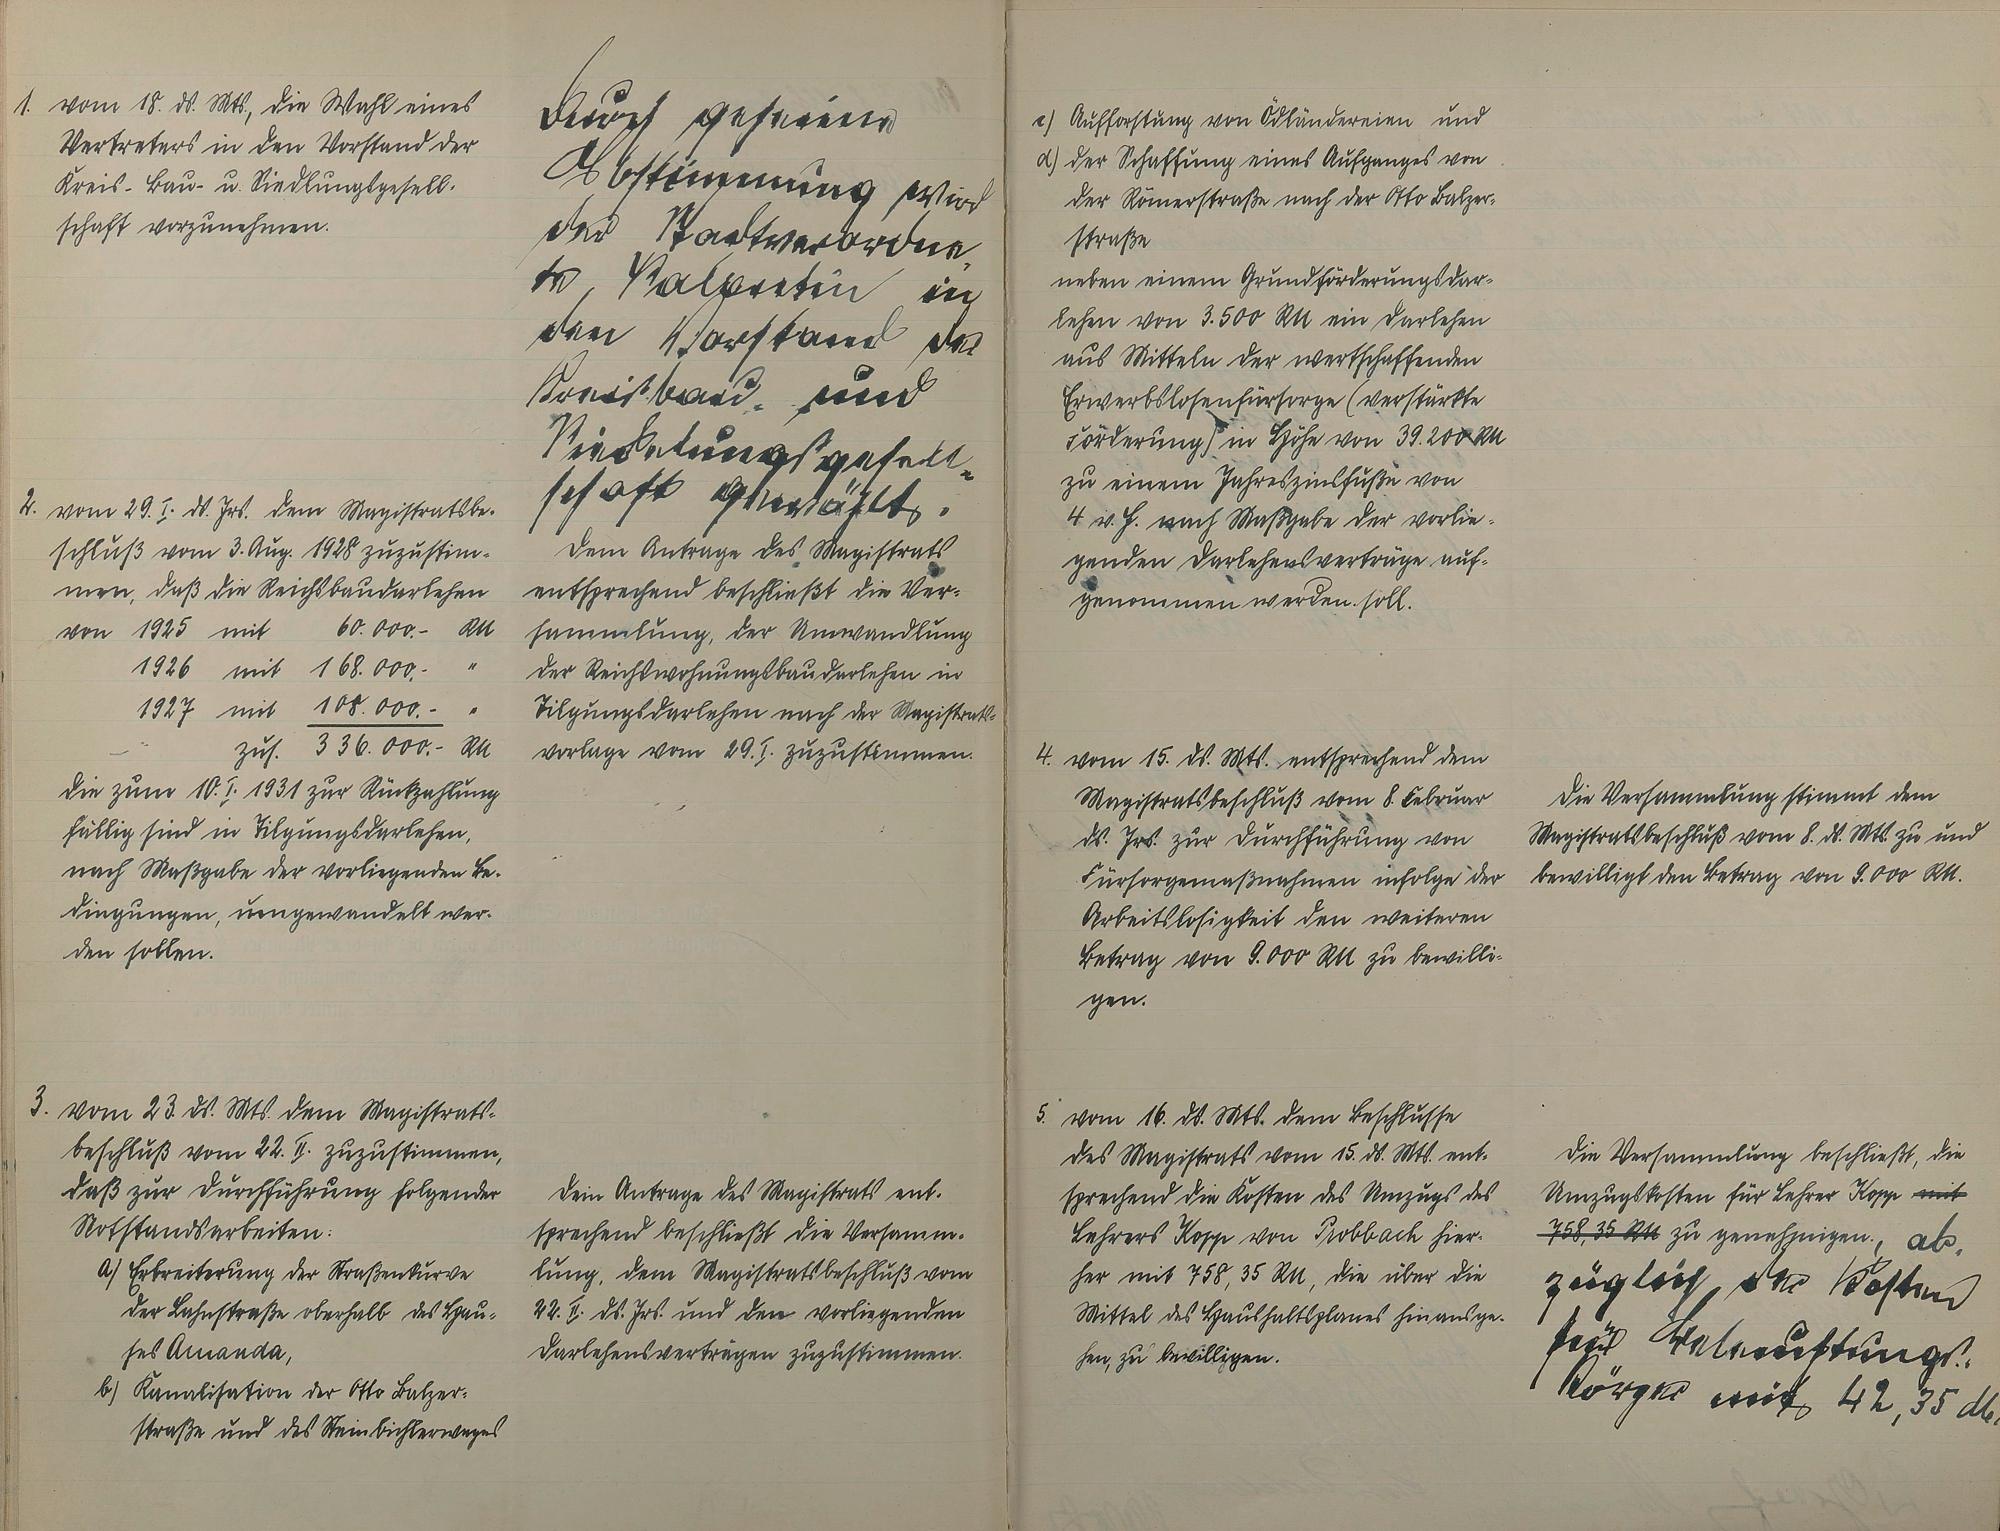 1. vom 18. ds. Mts., die Wahl eines
Vertreters in den Vorstand der
Kreis- Bau- u. Siedlungsgesell-
schaft vorzunehmen.
Durch geheime
Abstimmung wird
der Stadtverordne-
te in
den Vorstand der
Kreisbau- und
Siedelungsgesell-
schaft gewählt.
2. vom 29. I. ds. Jrs. dem Magistratsbe-
schluß vom 3. Aug. 1928 zuzustim-
men, daß die Reichsbaudarlehen
von 1925 mit 60.000.- RM
1926 mit 168.000.- "
1927 mit 108.000.- "
zus. 336.000.- RM
die zum 10. I. 1931 zur Rückzahlung
fällig sind in Tilgungsdarlehen,
nach Maßgabe der vorliegenden Be-
dingungen, umgewandelt wer-
den sollen.
Dem Antrage des Magistrats
entsprechend beschließt die Ver-
sammlung, der Umwandlung
der Reichswohnungsbaudarlehen in
Tilgungsdarlehen nach der Magistrats-
vorlage vom 29. I. zuzustimmen.
3. vom 23. ds. Mts. dem Magistrats-
beschluß vom 22. II. zuzustimmen,
daß zur Durchführung folgender
Notstandsarbeiten:
a) Erbreiterung der Straßenkurve
der Bahnstraße oberhalb des Hau-
ses Amanda,
b) Kanalisation der Otto Balzer-
straße und des Steinbichlerweges
Dem Antrage des Magistrats ent-
sprechend beschließt die Versamm-
lung, dem Magistratsbeschluß vom
22. II. ds. Jrs. und den vorliegenden
Darlehensverträgen zuzustimmen.
c) Aufforstung von Ödländereien und
d) der Schaffung eines Aufganges von
der Römerstraße nach der Otto Balzer-
straße
neben einem Grundförderungsdar-
lehen von 3.500 RM ein Darlehen
aus Mitteln der wertschaffenden
Erwerbslosenfürsorge (verstärkte
Förderung) in Höhe von 39.200 RM
zu einem Jahreszinsfuße von
4 v. H. nach Maßgabe der vorlie-
genden Darlehensverträge auf-
genommen werden soll.
4. vom 15. ds. Mts. entsprechend dem
Magistratsbeschluß vom 8. Februar
ds. Jrs. zur Durchführung von
Fürsorgemaßnahmen infolge der
Arbeitslosigkeit den weiteren
Betrag von 9.000 RM zu bewilli-
gen.
Die Versammlung stimmt dem
Magistratsbeschluß vom 8. ds. Mts. zu und
bewilligt den Betrag von 9.000 RM.
5. vom 16. ds. Mts. dem Beschlusse
des Magistrats vom 15. ds. Mts. ent-
sprechend die Kosten des Umzugs des
Lehrers Kopp von hier-
her mit 758,35 RM, die über die
Mittel des Haushaltsplanes hinausge-
hen, zu bewilligen.
Die Versammlung beschließt, die
Umzugskosten für Lehrer Kopp mit
758,35 RM zu genehmigen, ab-
züglich der Kosten
für Beleuchtungs-
körper mit 42,35 M.